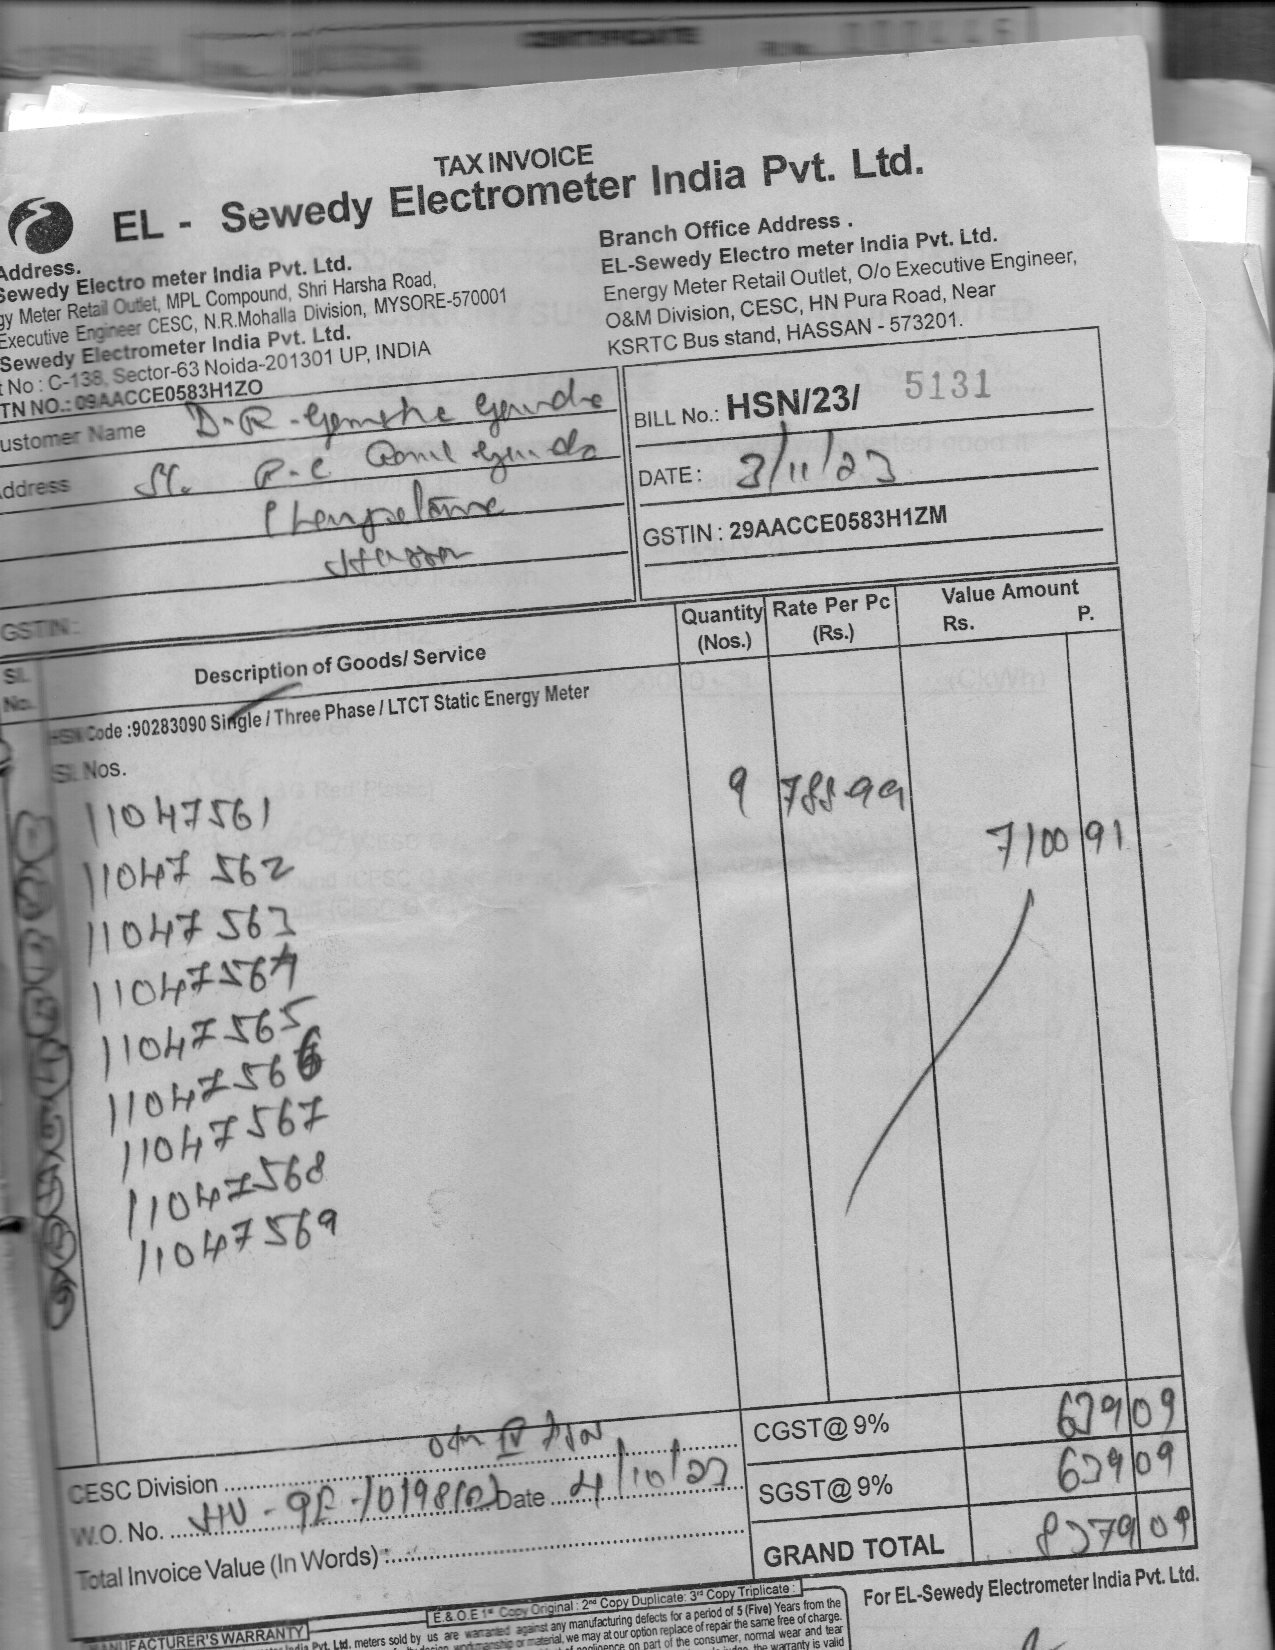 CERTIFICATE
TAX INVOICE
EL - Sewedy Electrometer India Pvt. Ltd.
Address.
Sewedy Electro meter India Pvt. Ltd.
gy Meter Retail Outlet, MPL Compound, Shri Harsha Road,
Executive Engineer CESC, N.R.Mohalla Division, MYSORE-570001
Sewedy Electrometer India Pvt. Ltd.
t No : C-138, Sector-63 Noida-201301 UP, INDIA
TN NO.: 09AACCE0583H1ZO
Branch Office Address .
EL-Sewedy Electro meter India Pvt. Ltd.
Energy Meter Retail Outlet, O/o Executive Engineer,
O&M Division, CESC, HN Pura Road, Near
KSRTC Bus stand, HASSAN - 573201.
ustomer Name D-R-
ddress
Hassan
GSTIN :
BILL No.: HSN/23/ 5131
DATE : 3/11/23
GSTIN : 29AACCE0583H1ZM
Sl. No. Description of Goods/ Service Quantity (Nos.) Rate Per Pc (Rs.) Value Amount Rs. P.
HSN Code :90283090 Single / Three Phase / LTCT Static Energy Meter
Sl. Nos.
11047561 9 788.99 7100 91
11047562
11047563
11047564
11047565
11047566
11047567
11047568
11047569
CGST@ 9% 639 09
SGST@ 9% 639 09
GRAND TOTAL 8379 09
CESC Division
W.O. No. Date 4/10/23
Total Invoice Value (In Words) :
For EL-Sewedy Electrometer India Pvt. Ltd.
E.& O.E 1st Copy Original : 2nd Copy Duplicate: 3rd Copy Triplicate :
MANUFACTURER'S WARRANTY
India Pvt. Ltd. meters sold by us are warranted against any manufacturing defects for a period of 5 (Five) Years from the
workmanship or material, we may at our option replace of repair the same free of charge.
on part of the consumer, normal wear and tear
the warranty is valid